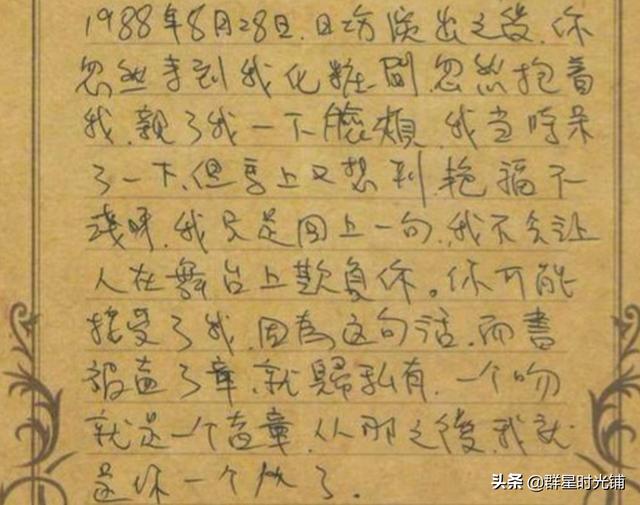 1988年8月28日.日场演出之後.你
忽然来到我化粧间.忽然抱着
我.親了我一下臉頰.我当時呆
了一下.但馬上又想到.艳福不
淺呀.我只是回上一句.我不会让
人在舞台上欺負你。你可能
接受了我.因為这句话.而書
被盖了章.就歸私有.一个吻
就是一个盖章.从那之後.我就
是你一个人了.
头条 @群星时光铺